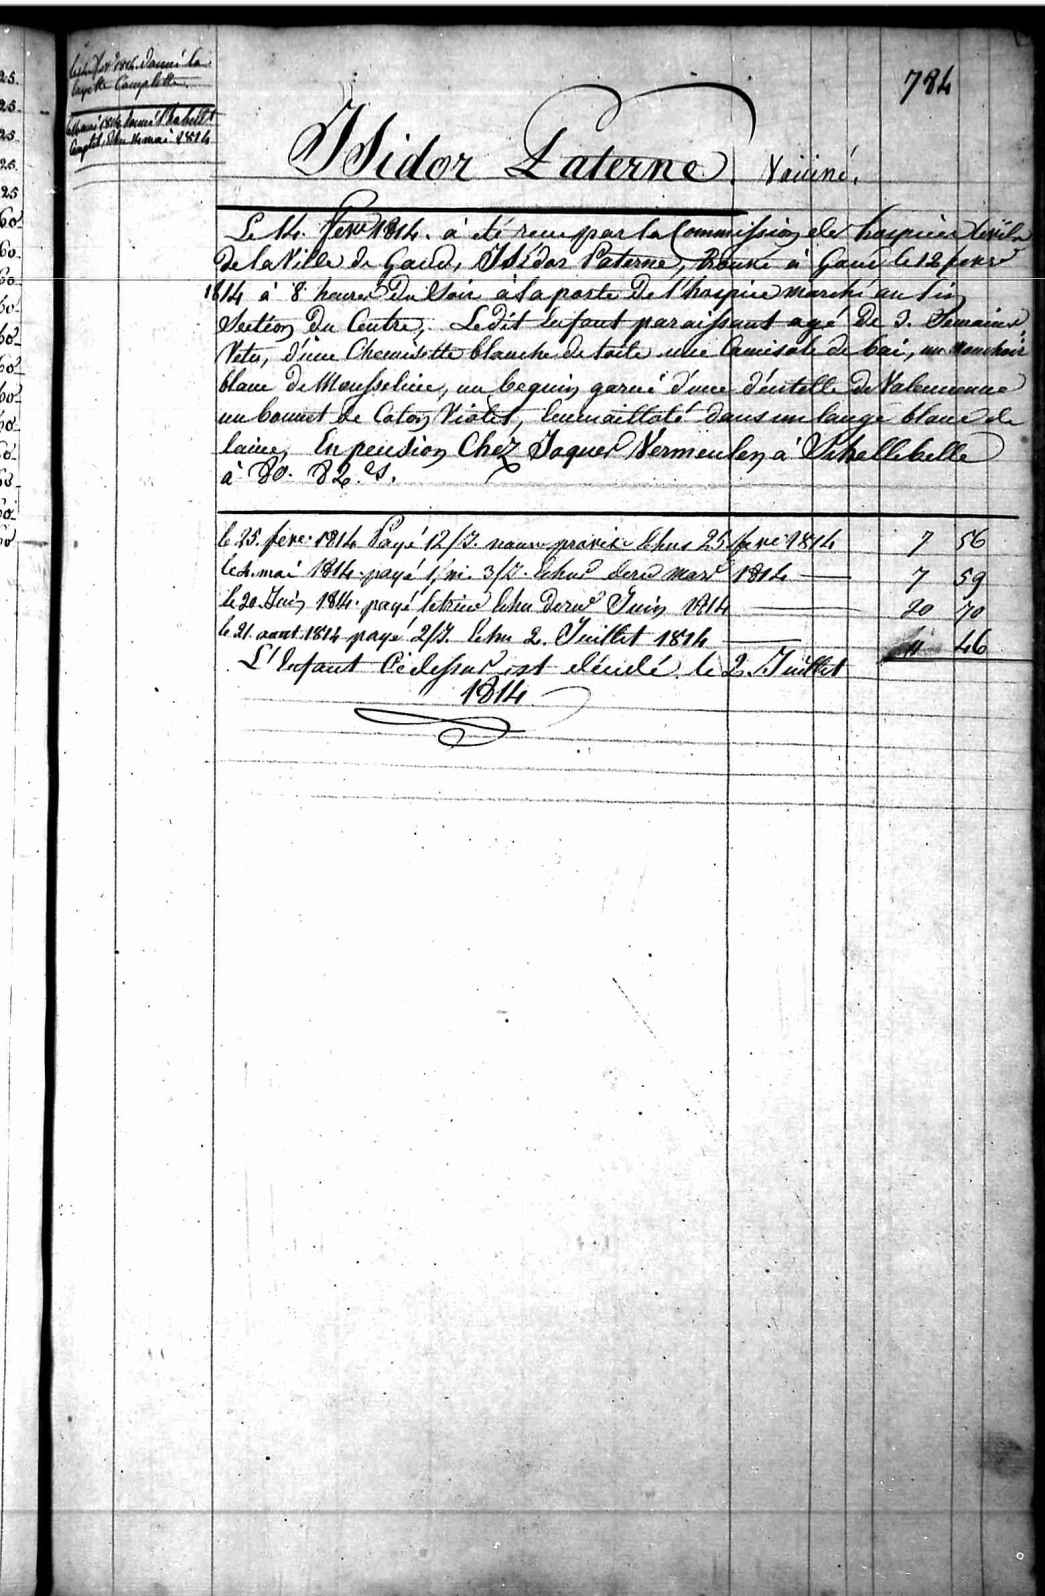 784
donné la
layette Complette.
1814 donné l'habillt
mai 1814
Isidor Paterne. Vaciné.
Le 14. fevr 1814. à été recu par la Commission des hospices Civils
de la Ville de Gand, Isidor Paterne, trouvé à Gand le 12 fevr
1814 à 8 heures du Soir à la porte de l'hospice marché au lin
Section du Centre, Ledit Enfant paraissant agé de 3. Semaines
Vetu, d'une Chemisette blanche de toile une Camisole de bai, un mouchoir
blanc de Mousseline, un beguin garni d'une dentelle de Valencienne
un bonnet de Coton Violet, Emmaillotté dans un lange blanc de
laine, En pension Chez Jaques Vermeulen à Schellebelle
à
le 25. fevr. 1814 Payé 12/J. nour provis. Echus 25 fevr 1814 7 56
le 2. mai 1814 payé 1/m. 3/J. Echus dern mars 1814 7 59
le 20. Juin 1814. payé letrim Echu dern Juin 1814 20 70
le 21. aout 1814 payé 2/J. Echu 2. Juillet 1814 11 46
L'Enfant Cidessus est décédé le 2. Juillet
1814
25.
25.
25.
25.
25
60
60.
60
60.
60.
60
60
60